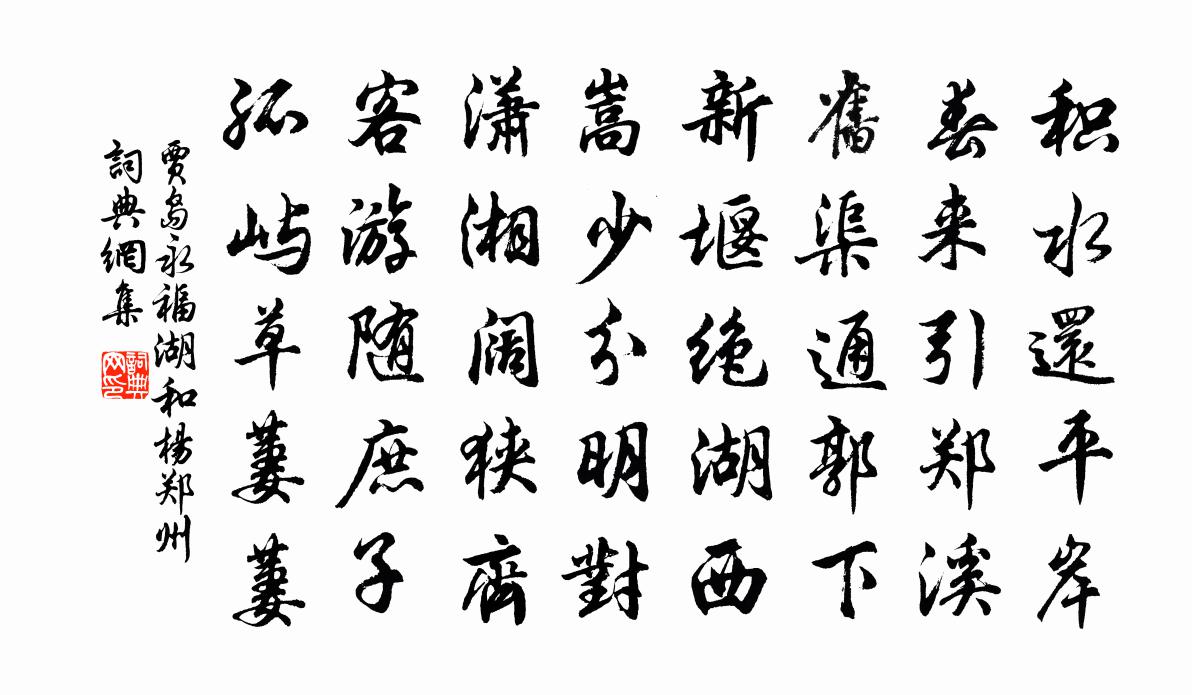 积水還平岸
春来引郑溪
舊渠通郭下
新堰绝湖西
嵩少分明對
瀟湘阔狭齊
客游随庶子
孤屿草萋萋
賈岛永福湖和楊郑州
詞典網集
詞典网印